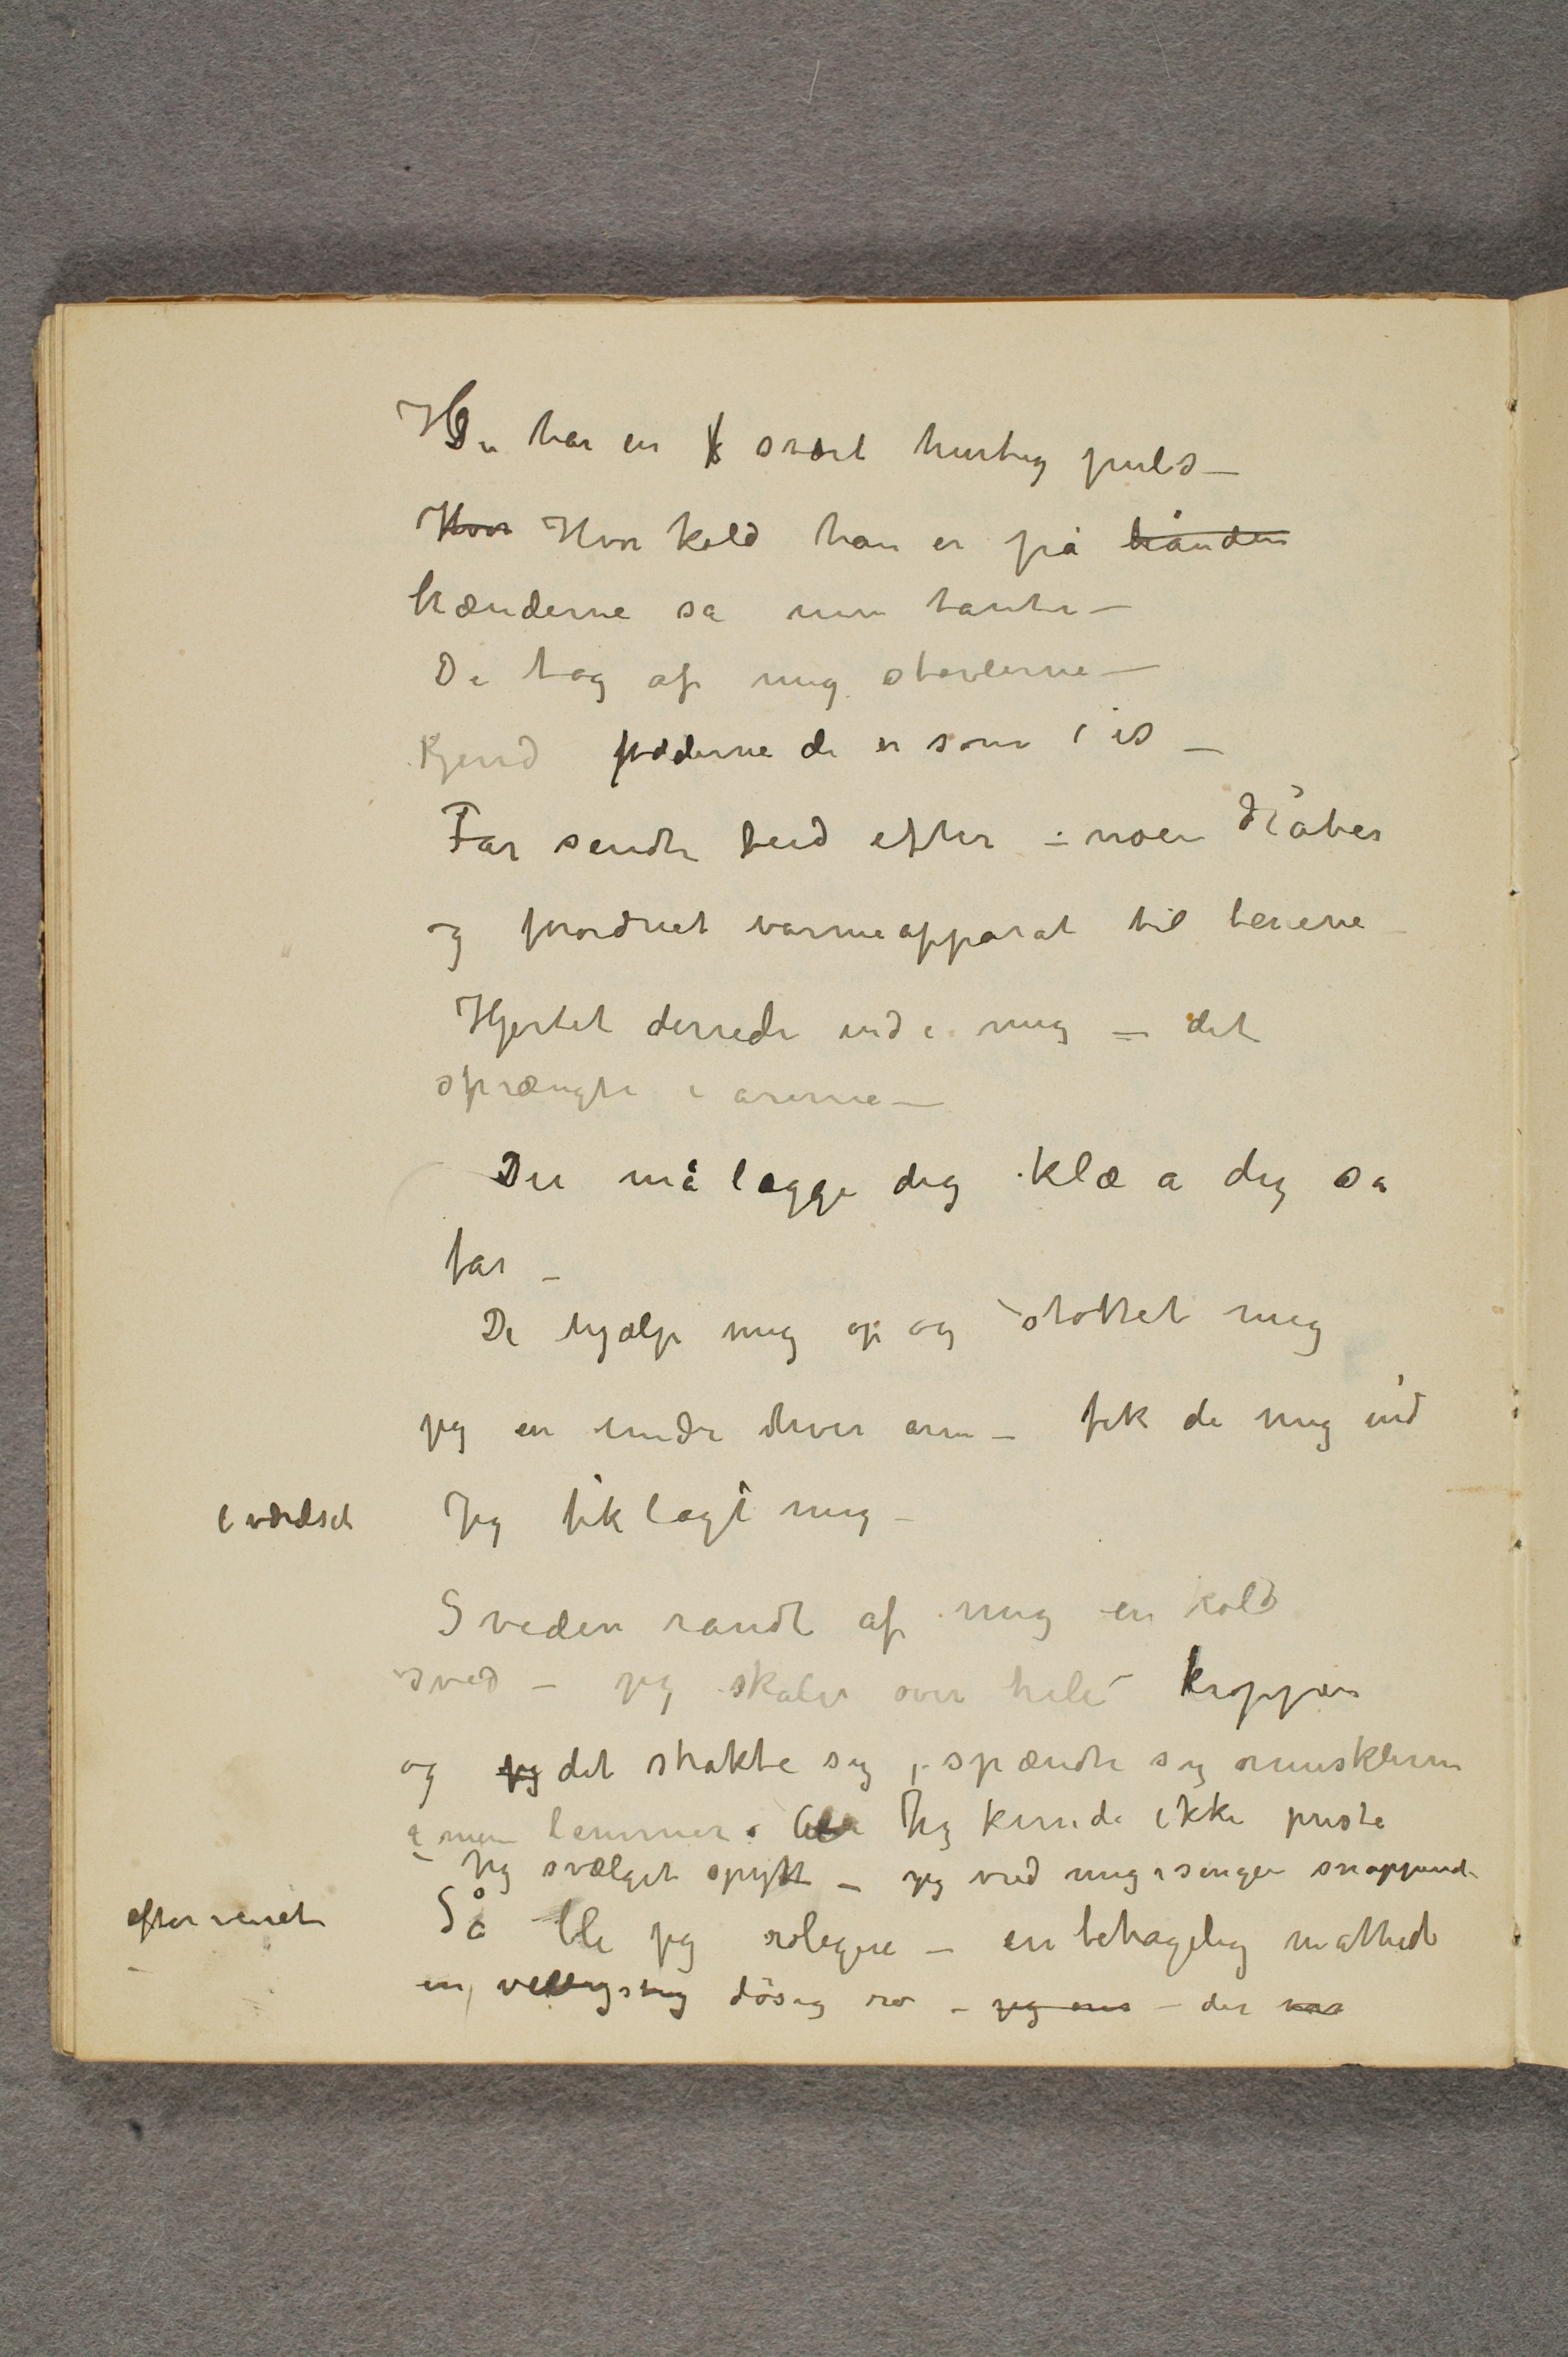 Du har en svært hurtig puls —
Hvor Hvor kold han er på hånden
hænderne sa min tante —
De tog af mig støvlerne —
Kjend fødderne de er som i is —
Far sendte bud efter – noen dråber
og forordnet varmeapparat til benene
Hjertet dirrede ind i mig – det
sprængte i årerne —
Du må lægge dig klæ a dig sa
far –
De hjalp mig op og støttet mig
jeg en under hver arm – fik de mig ind
i værelset
Jeg fik lagt mig –
Sveden randt af mig en kold
sved – jeg skalv over hele kroppen
og jeg det strakte sig, spændte sig musklerne
i mine lemmer. Jeg kunde ikke puste
– Jeg svælget spytt – jeg vred mig i sengen snappende
efter veiret
Så ble jeg roligere – en behagelig mathed
en vellystig døsig ro – jeg – der var